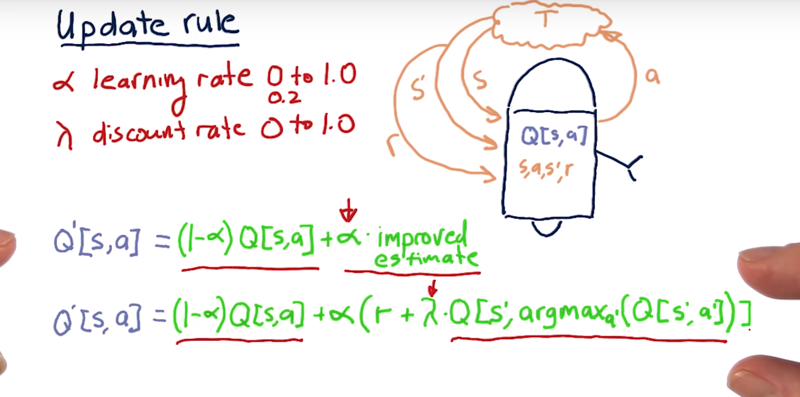 Update rule
α learning rate 0 to 1.0
0.2
λ discount rate 0 to 1.0
T
s'
s
a
r
Q[s,a]
s,a,s',r
Q'[s,a] = (1-α) Q[s,a] + α · improved
estimate
Q'[s,a] = (1-α) Q[s,a] + α (r + λ · Q[s', argmaxₐ'(Q[s', a'])]